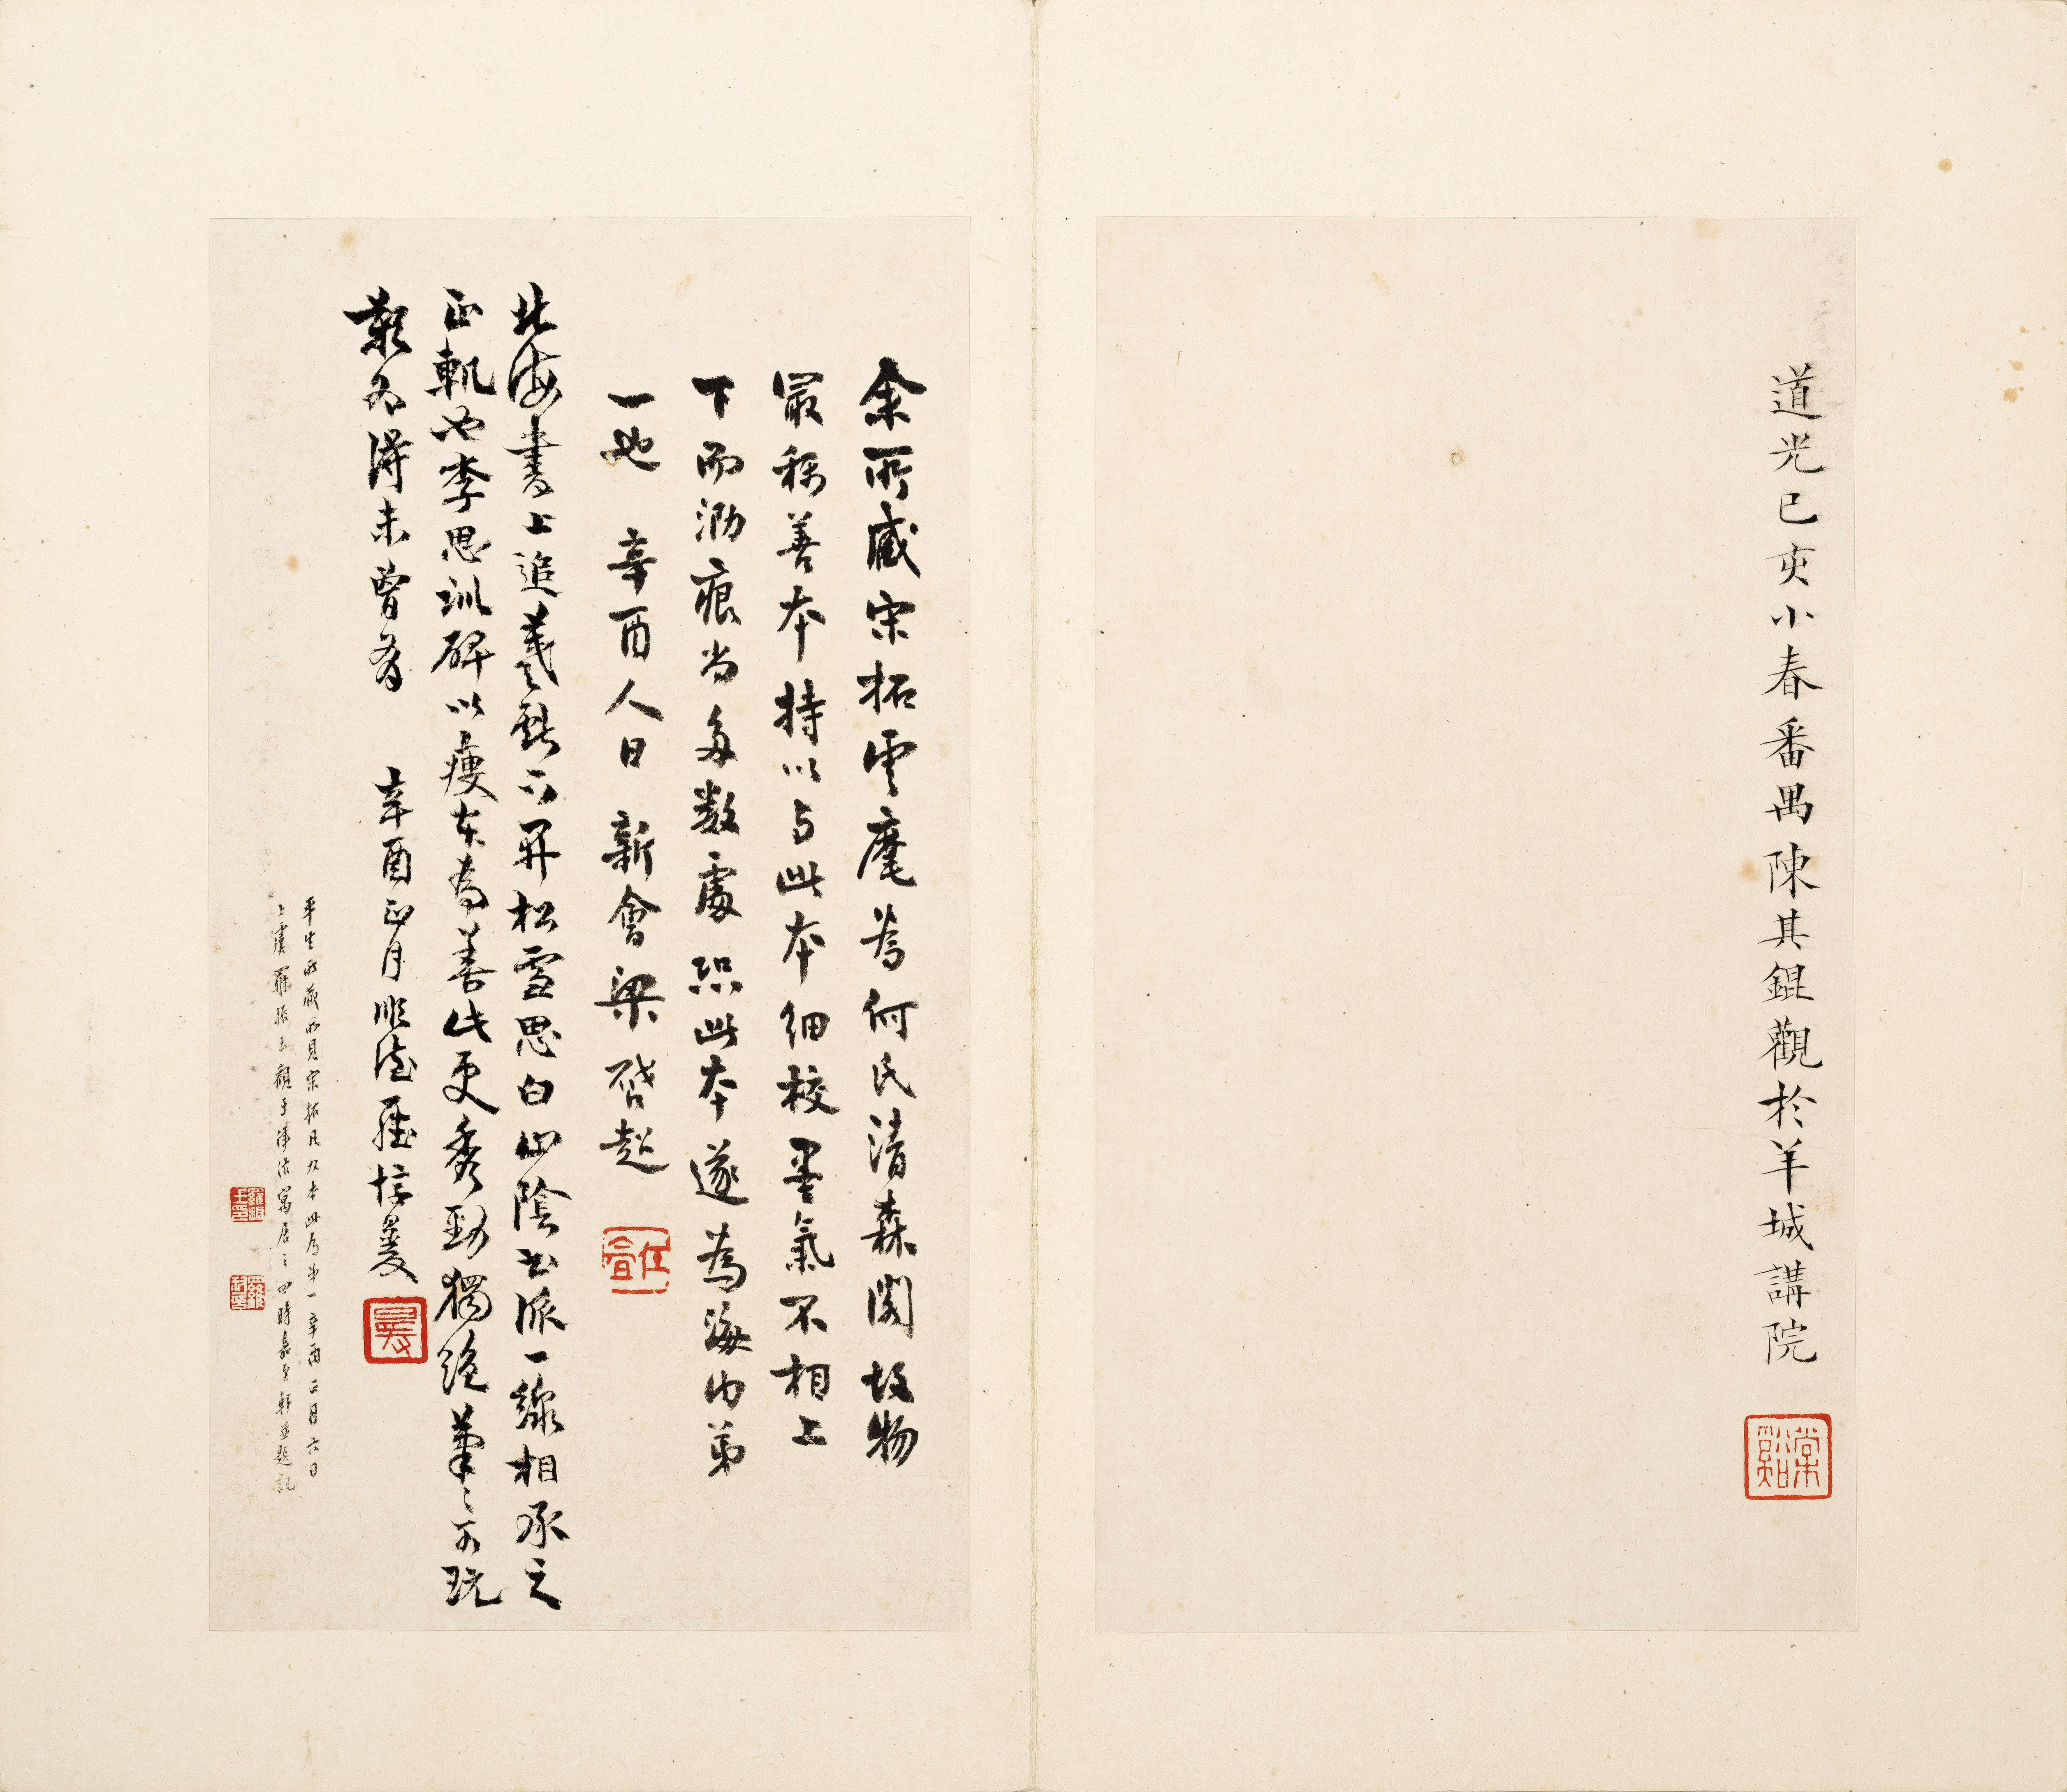 道光己亥小春番禺陳其錕觀於羊城講院
棠谿
余所藏宋拓雲麾為何氏清森閣故物
最稱善本持以与此本細校墨氣不相上
下而泐痕尚多數處然此本遂為海内弟
一也 辛酉人日新會梁啓超
任
北海書上追羲獻下開松雪思白山陰書派一線相承之
正軌也李思訓碑以瘦本為善此更秀勁獨絕筆〻可玩
歎為得未曾有 辛酉正月
平生所藏所見宋拓凡九本此為弟一辛酉二月六日
上虞羅振玉觀于津沽寓居之四時嘉至軒並題記